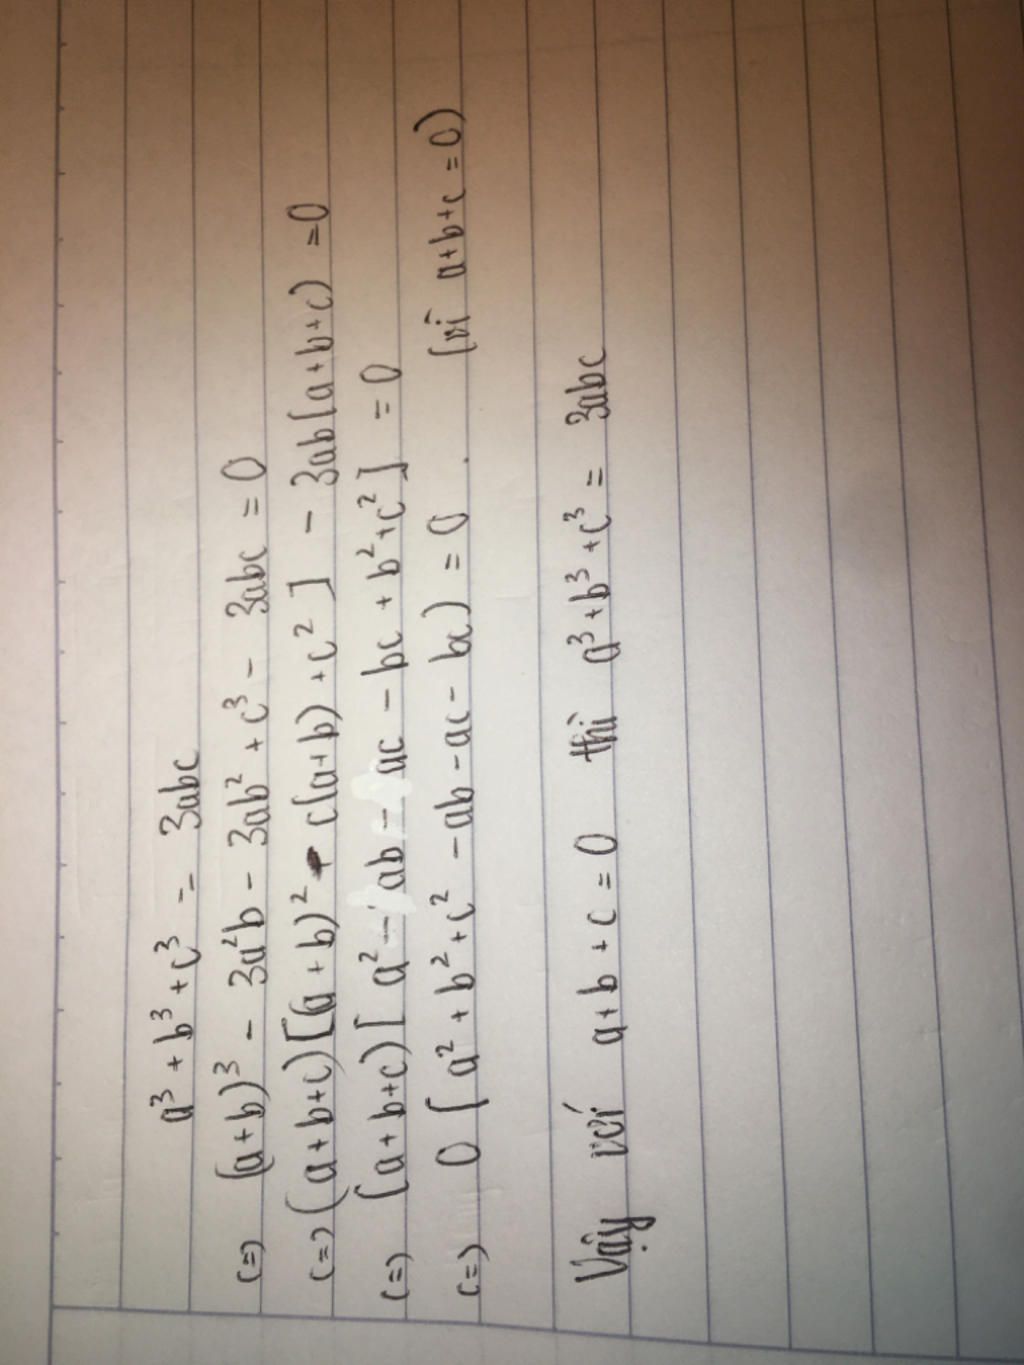 a³ + b³ + c³ = 3abc
(=) (a+b)³ - 3a²b - 3ab² + c³ - 3abc = 0
(=) (a+b+c)[(a+b)² - c(a+b) + c²] - 3ab(a+b+c) = 0
(=) (a+b+c)[a² - ab - ac - bc + b² + c²] = 0
(=) 0 (a² + b² + c² - ab - ac - bc) = 0. (vì a+b+c = 0)
Vậy với a+b+c = 0 thì a³ + b³ + c³ = 3abc